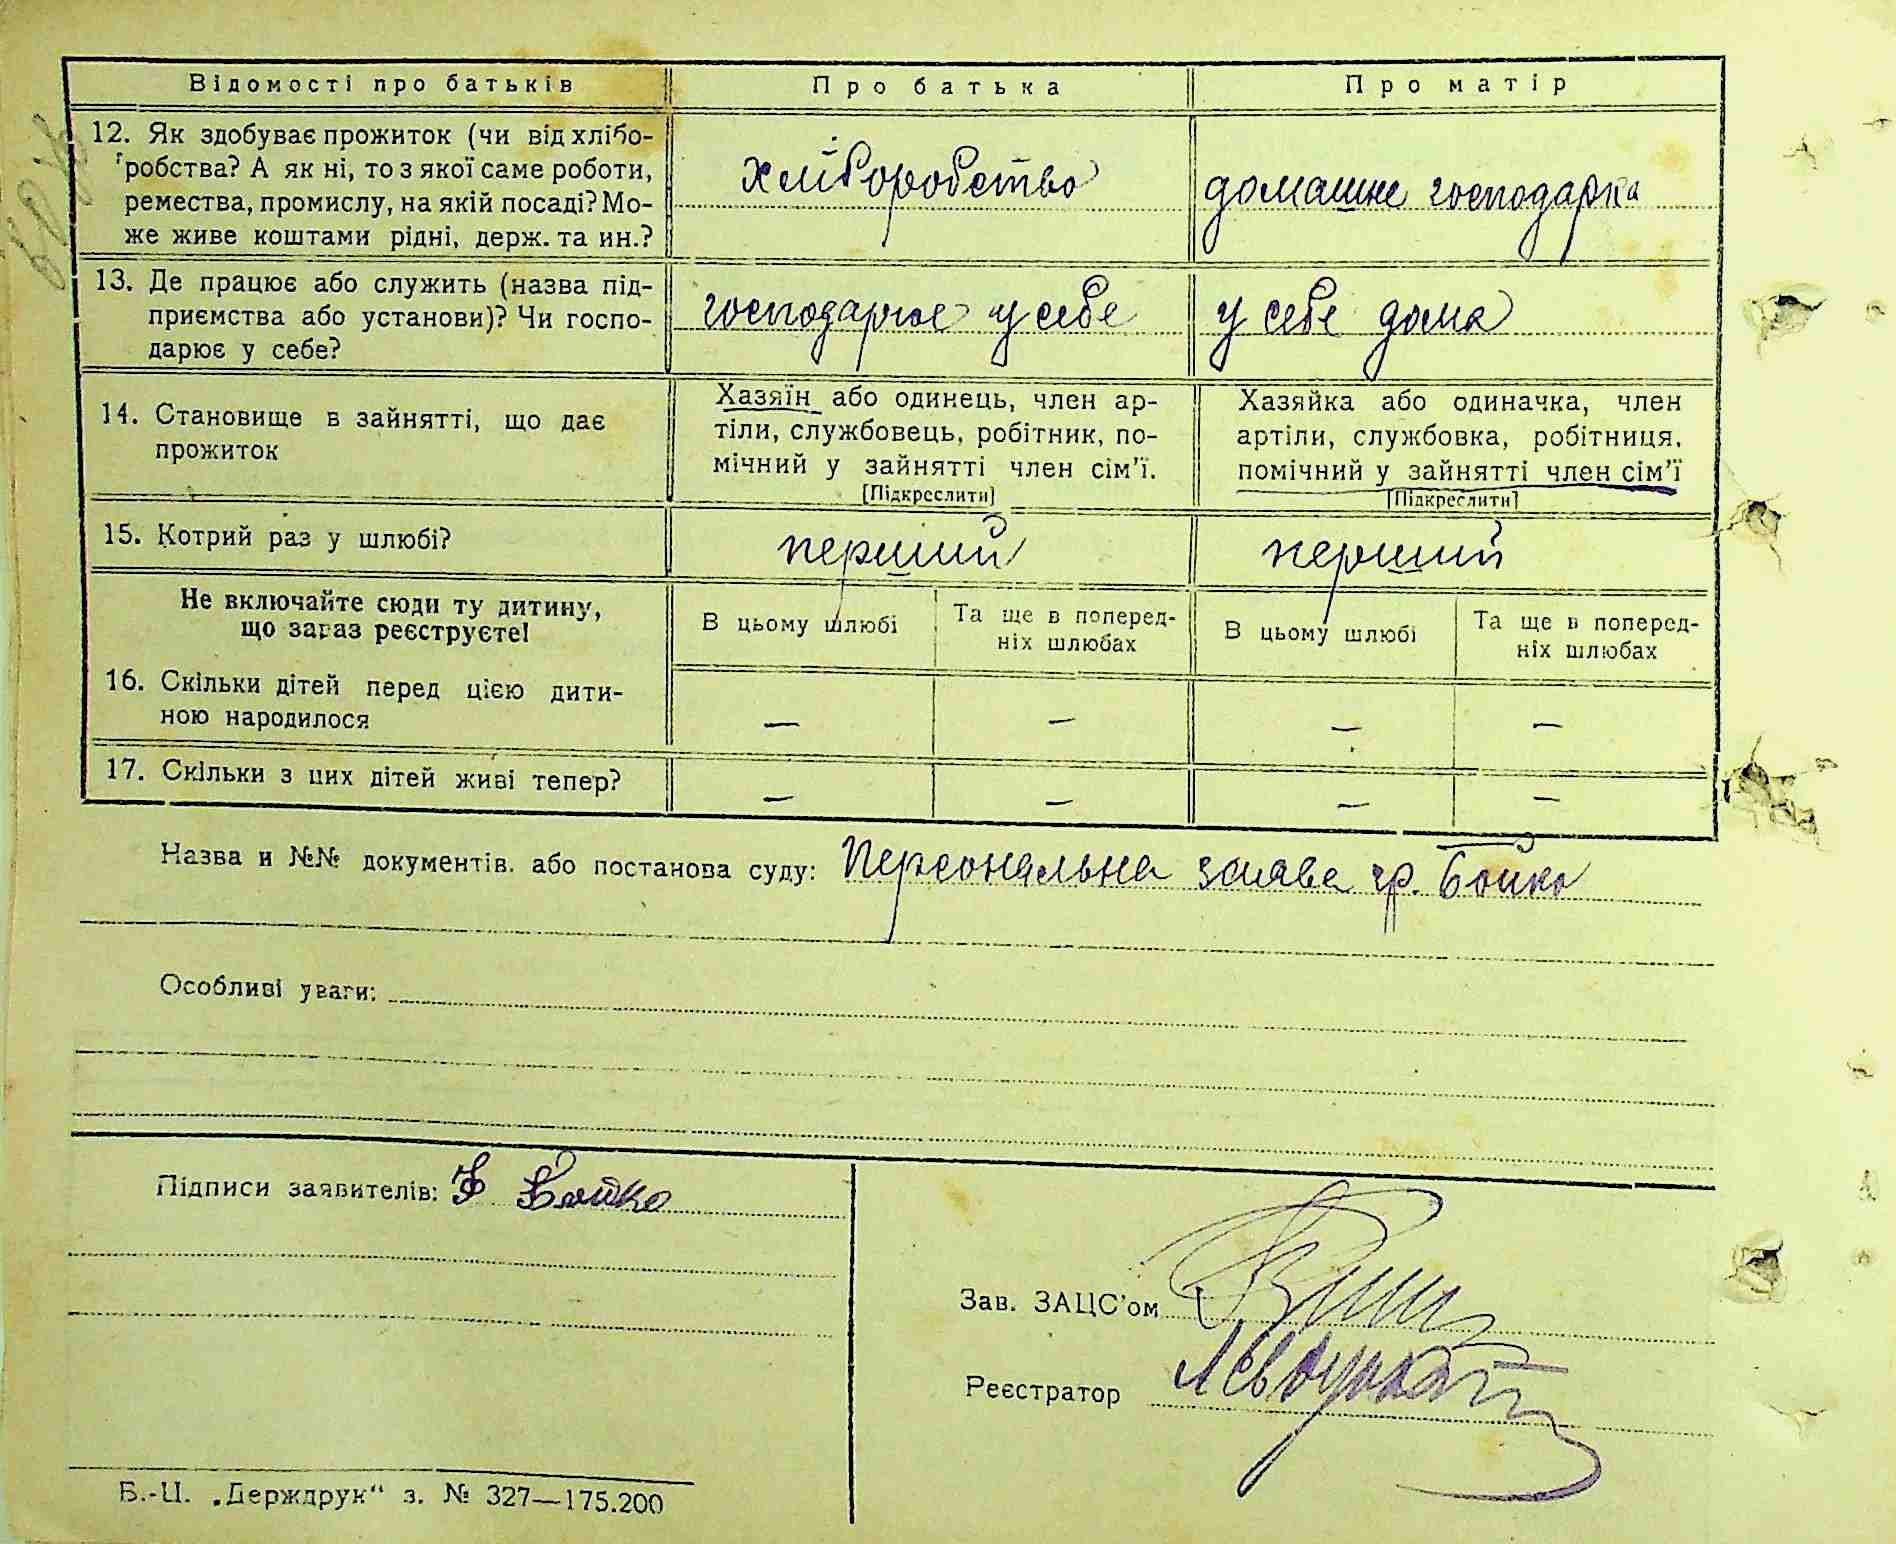 Відомості про батьків
Про батька
Про матір
12. Як здобуває прожиток (чи від хлібо-
робства? А як ні, то з якої саме роботи,
ремества, промислу, на якій посаді? Мо-
же живе коштами рідні, держ. та ин.?
хліборобство
домашне господарка
13. Де працює або служить (назва під-
приємства або установи)? Чи госпо-
дарює у себе?
господарює у себе
у себе дома
14. Становище в зайнятті, що дає
прожиток
Хазяїн або одинець, член ар-
тіли, службовець, робітник, по-
мічний у зайнятті член сім'ї.
[Підкреслити]
Хазяйка або одиначка, член
артіли, службовка, робітниця,
помічний у зайнятті член сім'ї
[Підкреслити]
15. Котрий раз у шлюбі?
перший
перший
Не включайте сюди ту дитину,
що зараз реєструєте!
В цьому шлюбі
Та ще в поперед-
ніх шлюбах
В цьому шлюбі
Та ще в поперед-
ніх шлюбах
16. Скільки дітей перед цією дити-
ною народилося
— — — —
17. Скільки з цих дітей живі тепер?
— — — —
Назва и №№ документів. або постанова суду: Персональна заява гр. Бойко
Особливі уваги:
Підписи заявителів: Бойко
Зав. ЗАЦС'ом
Реєстратор
Б.-Ц. „Держдрук" з. № 327—175.200